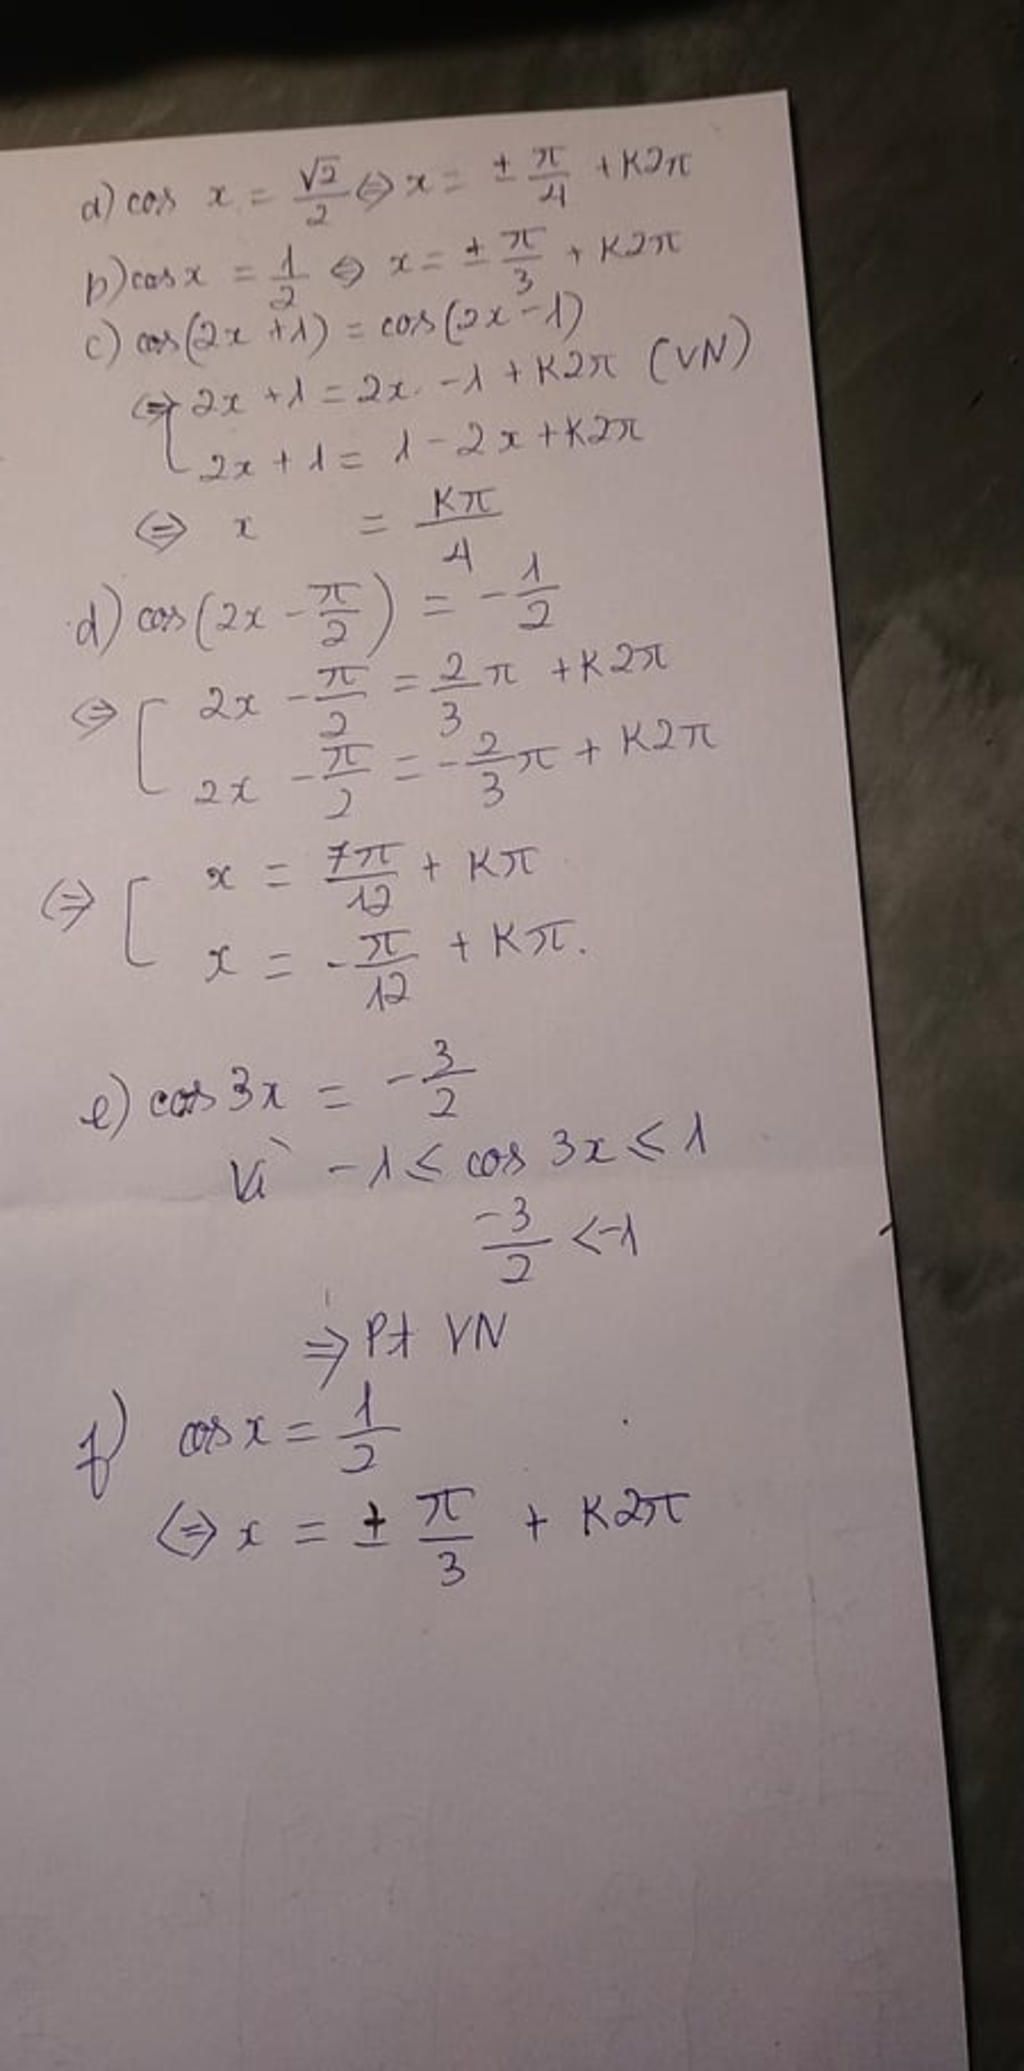 a) cos x = √2/2 ⇔ x = ± π/4 + K2π
b) cos x = 1/2 ⇔ x = ± π/3 + K2π
c) cos(2x + 1) = cos(2x - 1)
⇔ [ 2x + 1 = 2x - 1 + K2π (VN)
2x + 1 = 1 - 2x + K2π
⇔ x = Kπ/4
d) cos(2x - π/2) = -1/2
⇔ [ 2x - π/2 = 2/3 π + K2π
2x - π/2 = -2/3 π + K2π
⇔ [ x = 7π/12 + Kπ
x = -π/12 + Kπ.
e) cos 3x = -3/2
Vì -1 ≤ cos 3x ≤ 1
-3/2 < -1
⇒ Pt VN
f) cos x = 1/2
⇔ x = ± π/3 + K2π